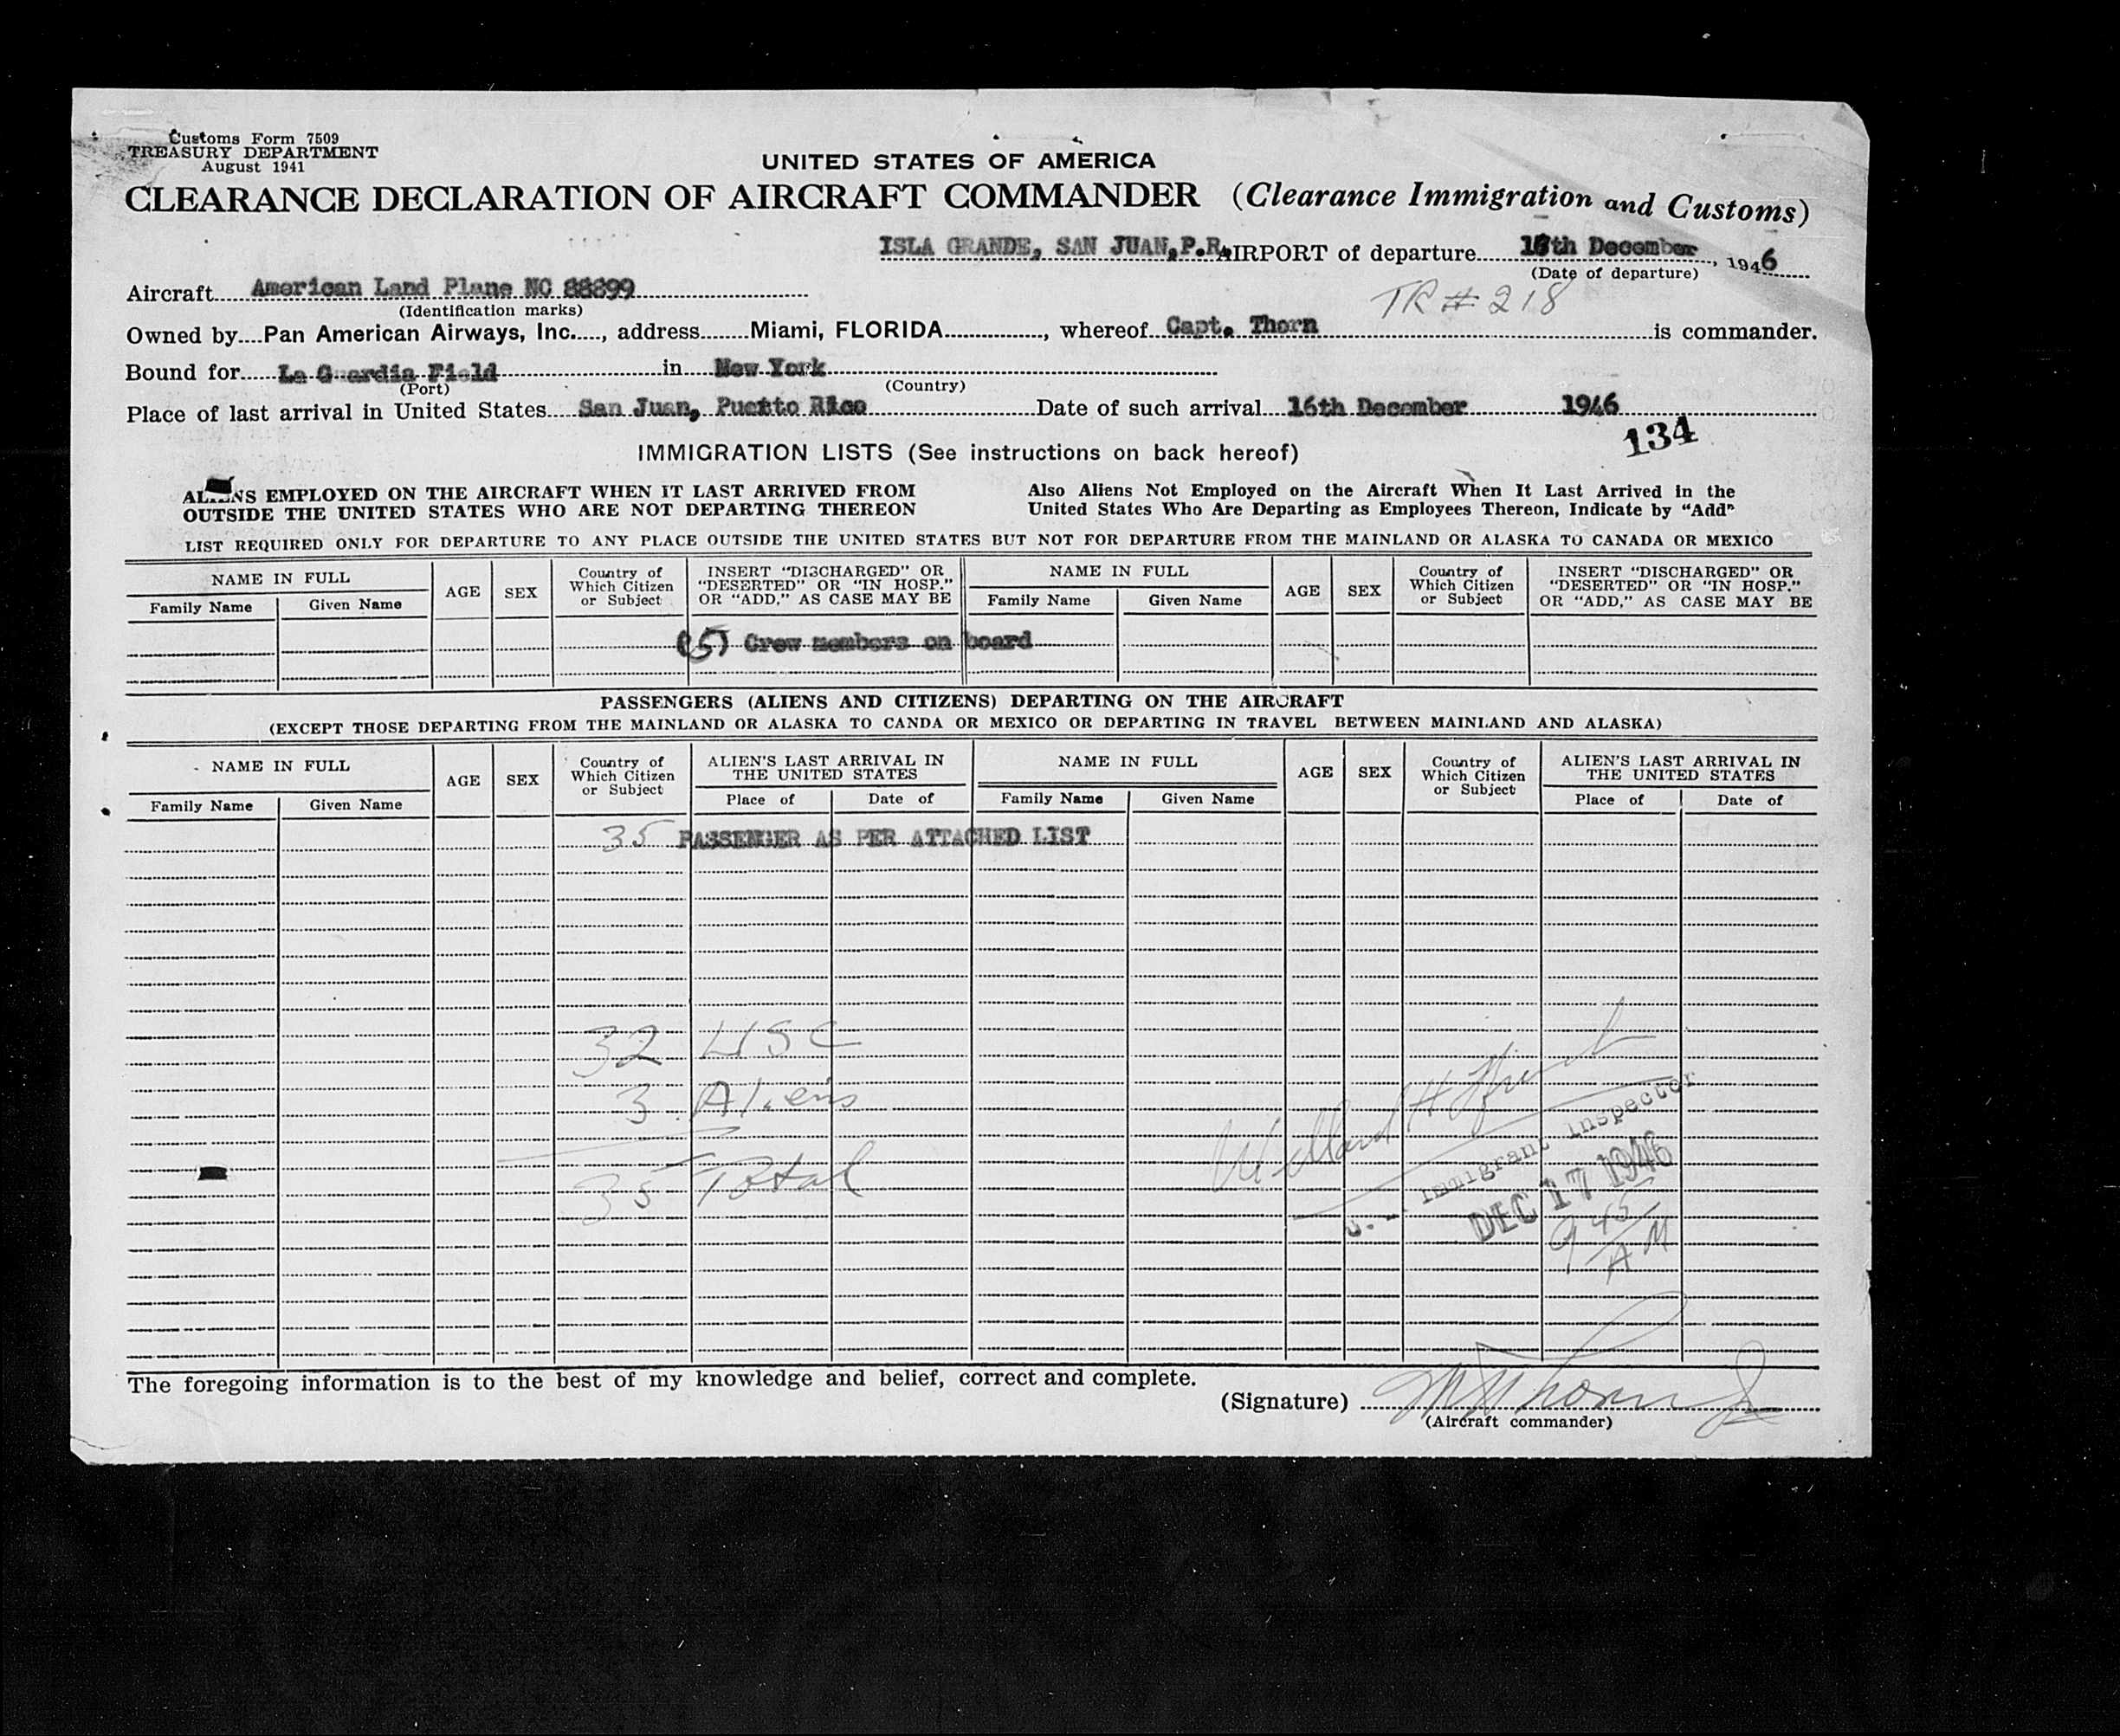 Customs Form 7509
TREASURY DEPARTMENT
August 1941
UNITED STATES OF AMERICA
CLEARANCE DECLARATION OF AIRCRAFT COMMANDER (Clearance Immigration and Customs)
ISLA GRANDE, SAN JUAN, P.R. AIRPORT of departure th December, 1946
(Date of departure)
TR # 218
Aircraft American Land Plane NC 88899
(Identification marks)
Owned by Pan American Airways, Inc., address Miami, FLORIDA, whereof Capt. Thorn is commander.
Bound for La Guardia Field in New York
(Port) (Country)
Place of last arrival in United States San Juan, Puerto Rico Date of such arrival 16th December 1946
134
IMMIGRATION LISTS (See instructions on back hereof)
ALIENS EMPLOYED ON THE AIRCRAFT WHEN IT LAST ARRIVED FROM
OUTSIDE THE UNITED STATES WHO ARE NOT DEPARTING THEREON
Also Aliens Not Employed on the Aircraft When It Last Arrived in the
United States Who Are Departing as Employees Thereon, Indicate by "Add"
LIST REQUIRED ONLY FOR DEPARTURE TO ANY PLACE OUTSIDE THE UNITED STATES BUT NOT FOR DEPARTURE FROM THE MAINLAND OR ALASKA TO CANADA OR MEXICO
NAME IN FULL
Family Name Given Name
AGE SEX
Country of
Which Citizen
or Subject
INSERT "DISCHARGED" OR
"DESERTED" OR "IN HOSP."
OR "ADD," AS CASE MAY BE
NAME IN FULL
Family Name Given Name
AGE SEX
Country of
Which Citizen
or Subject
INSERT "DISCHARGED" OR
"DESERTED" OR "IN HOSP."
OR "ADD," AS CASE MAY BE
(5) Crew members on board
PASSENGERS (ALIENS AND CITIZENS) DEPARTING ON THE AIRCRAFT
(EXCEPT THOSE DEPARTING FROM THE MAINLAND OR ALASKA TO CANDA OR MEXICO OR DEPARTING IN TRAVEL BETWEEN MAINLAND AND ALASKA)
NAME IN FULL
Family Name Given Name
AGE SEX
Country of
Which Citizen
or Subject
ALIEN'S LAST ARRIVAL IN
THE UNITED STATES
Place of Date of
NAME IN FULL
Family Name Given Name
AGE SEX
Country of
Which Citizen
or Subject
ALIEN'S LAST ARRIVAL IN
THE UNITED STATES
Place of Date of
35 PASSENGER AS PER ATTACHED LIST
32 USC
3 Aliens
35 Total
Immigrant Inspector
DEC 17 1946
9 45
AM
The foregoing information is to the best of my knowledge and belief, correct and complete.
(Signature)
(Aircraft commander)